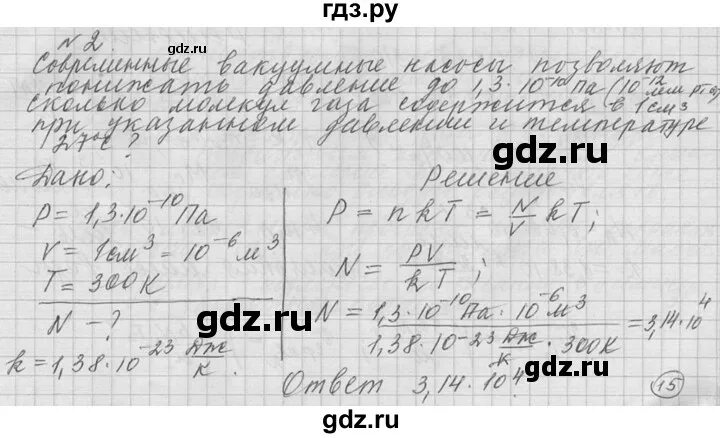 гдз.ру
№2
Современные вакуумные насосы позволяют
понижать давление до 1,3·10⁻¹⁰ Па (10⁻¹² мм рт. ст)
сколько молекул газа содержится в 1 см³
при указанном давлении и температуре
27°C?
Дано:
P = 1,3·10⁻¹⁰ Па
V = 1 см³ = 10⁻⁶ м³
T = 300 K
N - ?
k = 1,38·10⁻²³ Дж/K.
Решение
P = nkT = N/V kT;
N = PV/kT;
N = 1,3·10⁻¹⁰ Па · 10⁻⁶ м³ / 1,38·10⁻²³ Дж/K · 300 K = 3,14·10⁴
Ответ 3,14·10⁴.
15
gdz.ru
gdz.ru
gdz.ru
gdz.ru
gdz.ru
gdz.ru